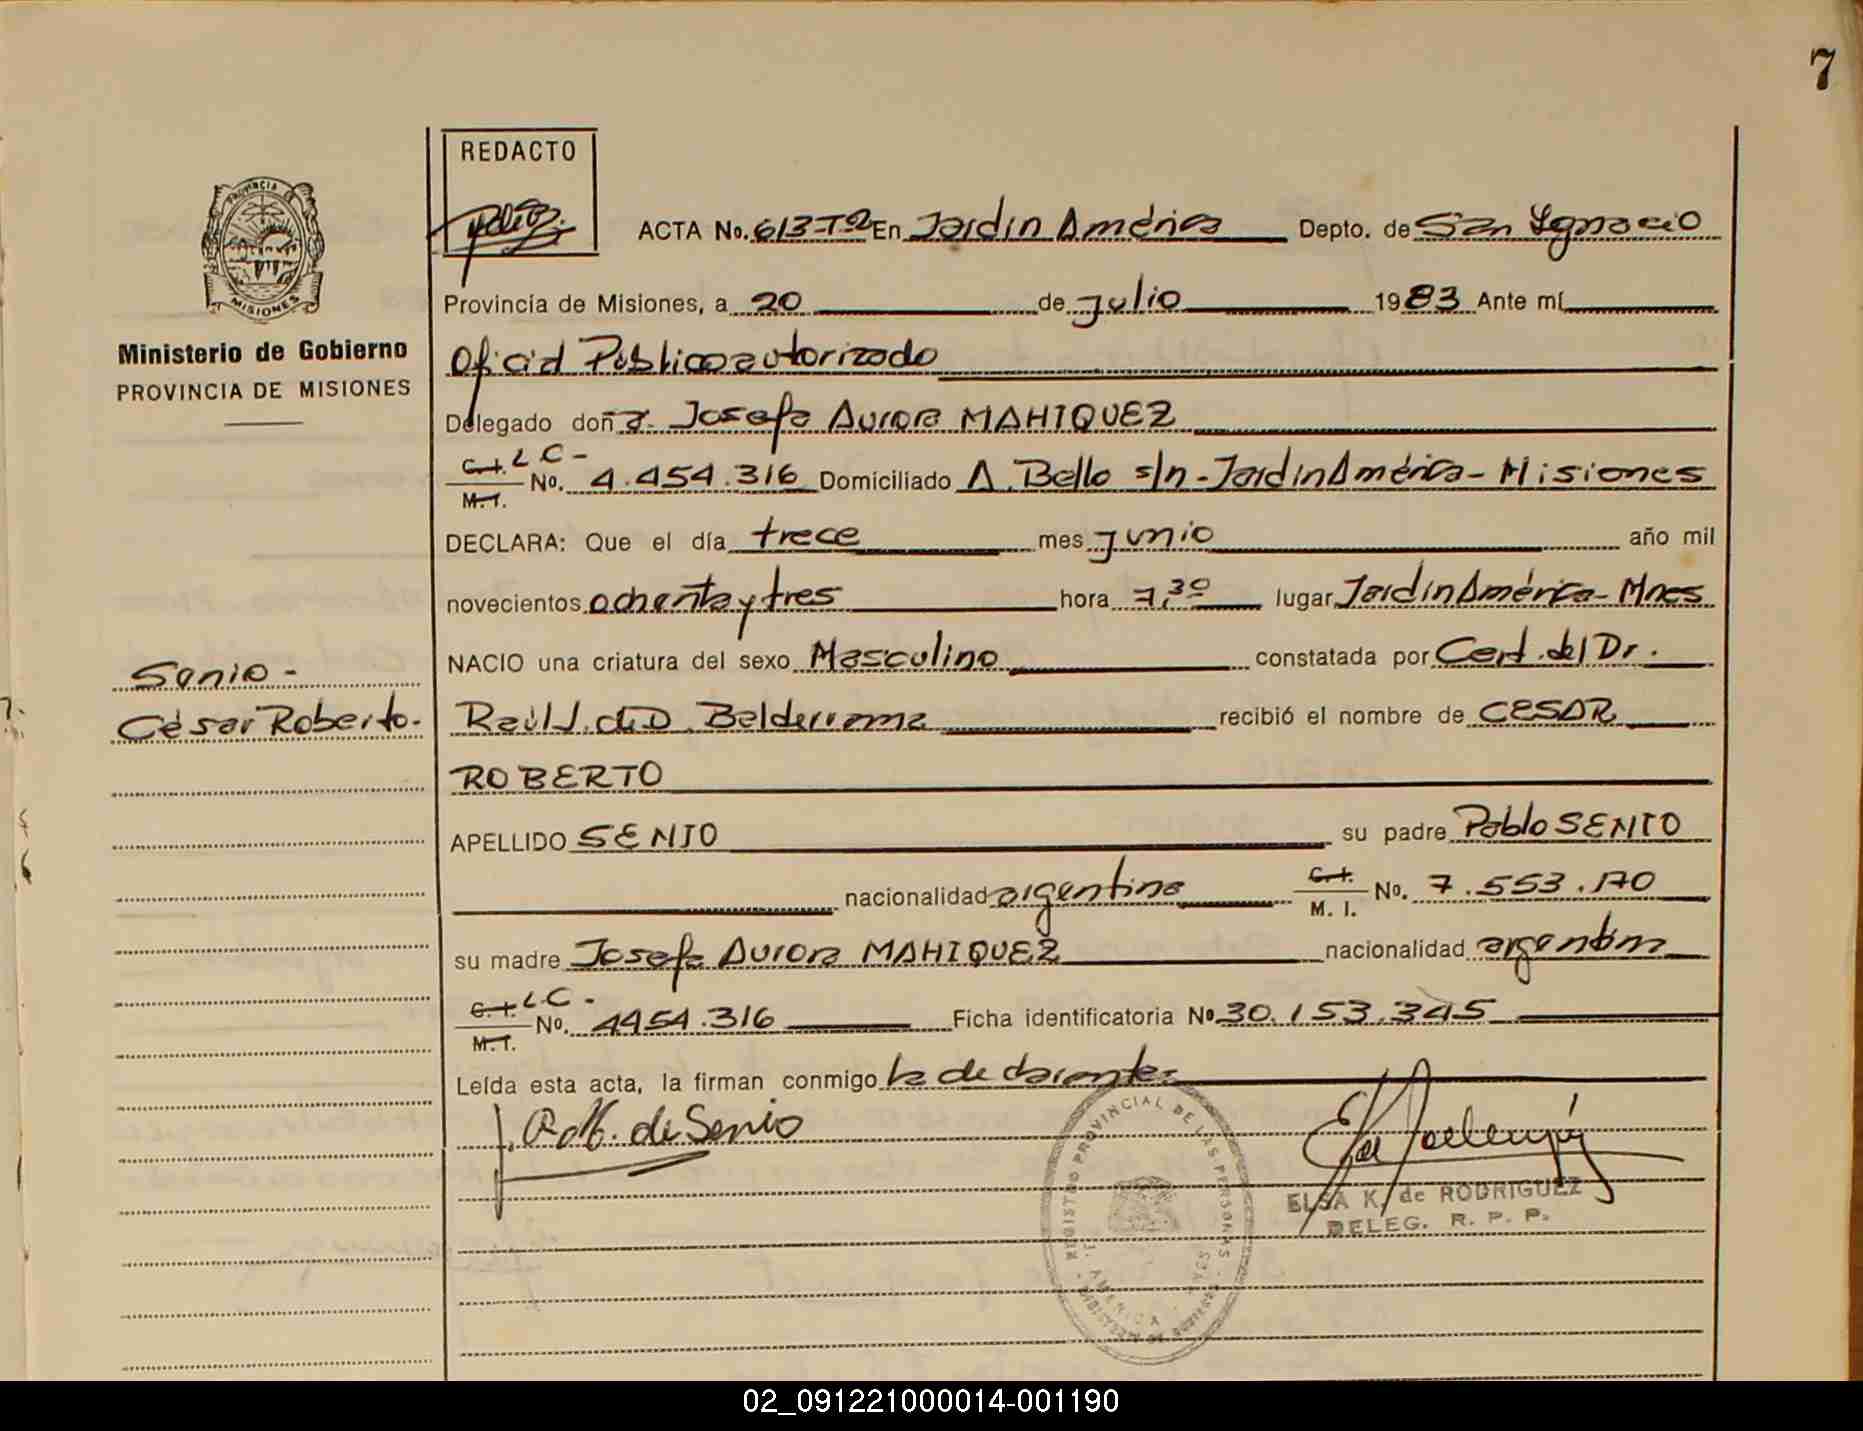 7
REDACTO
ACTA No. 613-Tº2 En Jardín América Depto. de San Ignacio
PROVINCIA
MISIONES
Ministerio de Gobierno
PROVINCIA DE MISIONES
Provincia de Misiones, a 20 de julio 1983 Ante mí
Oficial Público autorizado
Delegado doña. Josefa Aurora MAHIQUEZ
C.I. L C -
M.I. No. 4.454.316 Domiciliado A. Bello s/n - Jardín América - Misiones
DECLARA: Que el día trece mes junio año mil
novecientos ochenta y tres hora 7,30 lugar Jardín América - Mnes
NACIO una criatura del sexo Masculino constatada por Cert. del Dr.
Senio -
César Roberto.
Raúl J. Balderrama recibió el nombre de CESAR
ROBERTO
APELLIDO SENIO su padre Pablo SENIO
nacionalidad argentina C.I. M. I. No. 7.553.170
su madre Josefa Aurora MAHIQUEZ nacionalidad argentina
C.I. L C -
M.I. No. 4454.316 Ficha identificatoria No 30.153.345
Leída esta acta, la firman conmigo la declarante.
de Senio
REGISTRO PROVINCIAL DE LAS PERSONAS
AMERICA
ELSA K. de RODRIGUEZ
DELEG. R. P. P.
02_091221000014-001190